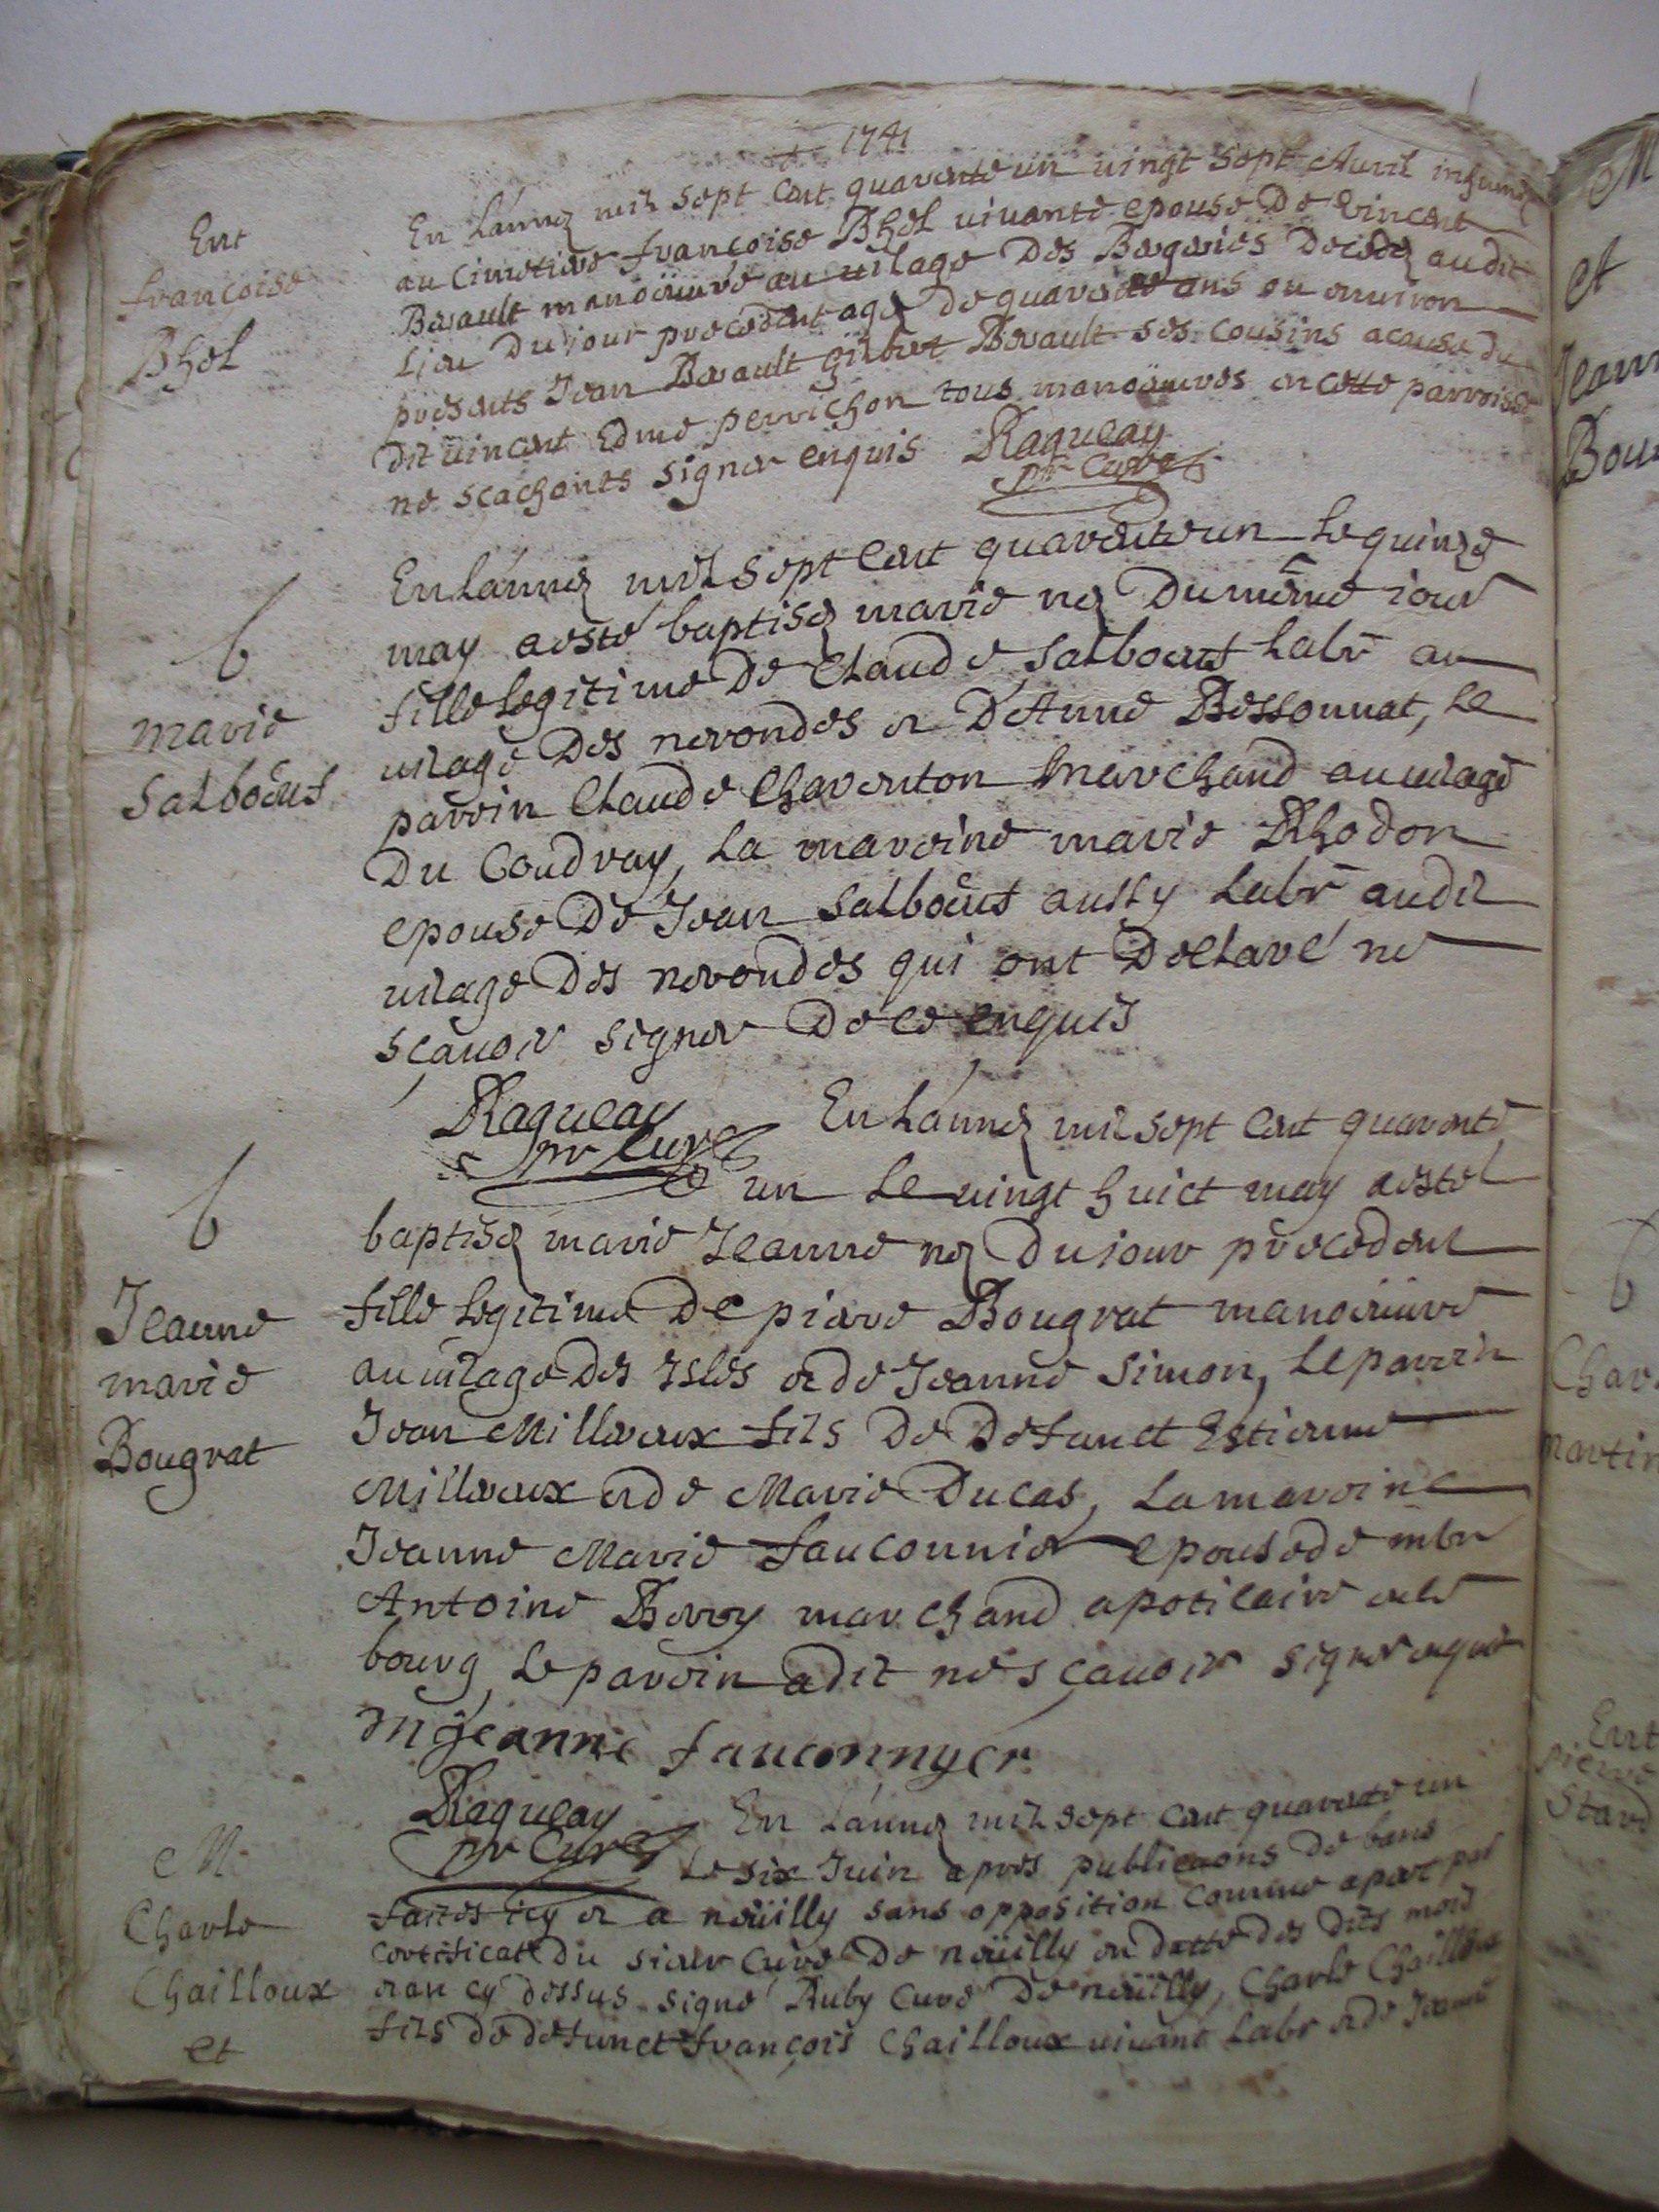 1741
Ent
francoise
Bhel
En L'annee mil sept cent quarente un vingt sept Avril inhumée
au Cimetiere francoise Bhel vivante epouse De vincent
Berault manoeuvre au vilage Des Bergeries Decedee audit
Lieu Du jour precedent agee De quarente ans ou environ
presents Jean Berault Gilbert Berault ses cousins acause du
dit vincent Edme perrichon tous manoeuvres en cette parroisse
ne scachants signer enquis Ragueau
pr Curé
b
marie
Salboeuf
En L'annee mil sept Cent quarente un Le quinze
may a esté baptisee marie nee Du même jour
fille Legitime De Claude Salboeuf Labr au
vilage Des nerondes et D'Anne Bessonnat, Le
parrin Claude Charenton marchand au vilage
Du Coudray, La maraine marie Rhodon
epouse De Jean Salboeuf aussy Labr audit
vilage Des nerondes qui ont Declaré ne
scavoir signer De ce enquis
Ragueau
pr Curé
b
Jeanne
marie
Bougrat
En L'annee mil sept Cent quarente
un Le vingt huict may a esté
baptisee marie Jeanne nee Du jour precedent
fille Legitime De pierre Bougrat manoeuvre
au vilage Des Isles et de Jeanne Simon, Le parrin
Jean Millereux fils De Defunct Estienne
Millereux et de Marie Ducas, La maraine
Jeanne Marie fauconnier epouse de
Antoine Berry marchand apoticaire en ce
bourg Le parrin a dit ne scavoir signer enquis
m jeanne fauconnyer
Ragueau
pr Curé
M
Charle
Chailloux
et
En L'annee mil sept Cent quarente un
Le six Juin apres publications De bans
faites icy et a neüilly sans opposition comme apert par
certificat Du sieur Curé De neüilly en datte des dits mois
et an cy dessus signé Ruby Curé De neüilly, Charle Chailloux
fils De defunct françois Chailloux vivant Labr et de Jeanne